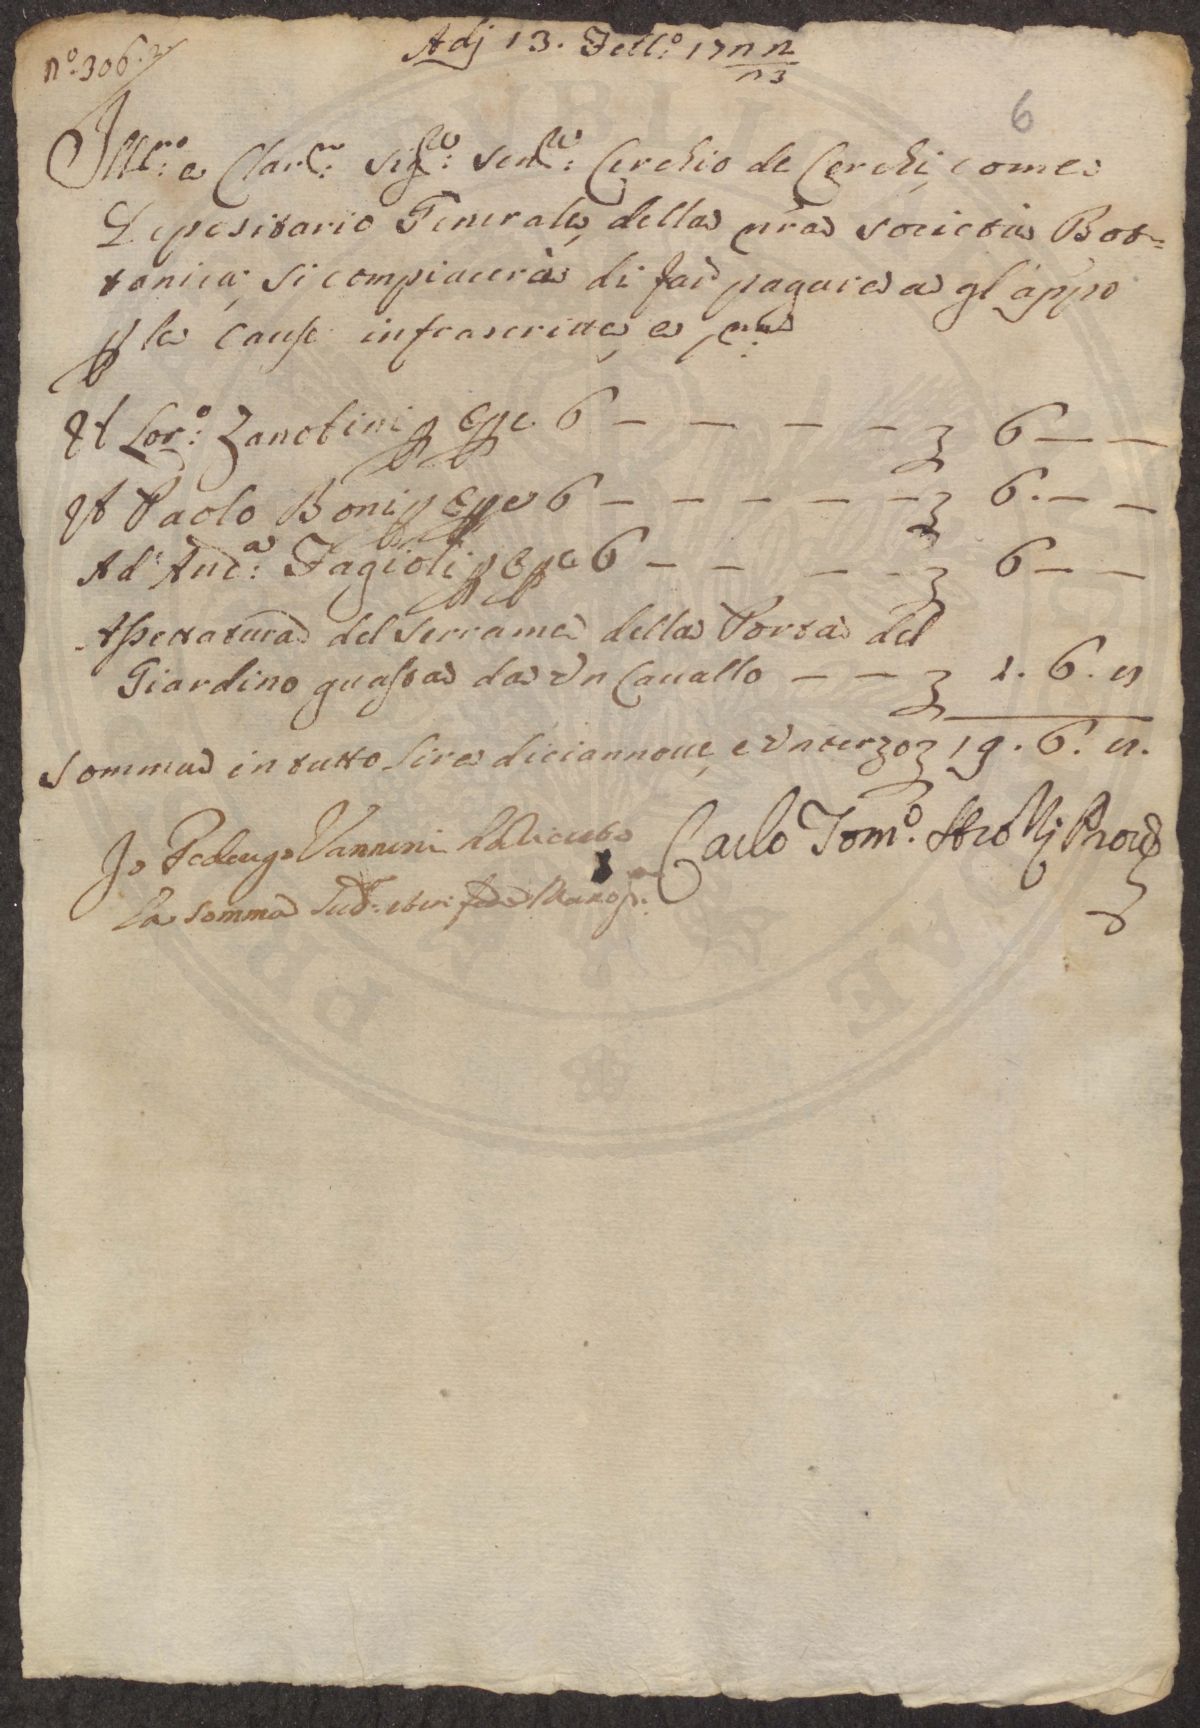 n.º 306.
Adj 13. Febb.º 17 22/23
6
Ill.mo e Clar.mo Sig.re Sen.re Cerchio de Cerchi, come
Depositario Generale, della nra società Bot=
tanica; si compiacerà di far pagare a gl'appo
p le cause infrascritte, e p.ma
A Lor.º Zanobini p Ope 6 — — — — £ 6 — —
A Paolo Boni p Ope 6 — — — — — £ 6. — —
Ad And.a Fagioli p Ope 6 — — — — £ 6 — —
Assettatura del serrame della Porta del
Giardino guasta da un Cavallo — — £ 1. 6. 8
Somma in tutto lire diciannove, e un terzo £ 19. 6. 8.
Io Vannini ho riceuto Carlo Tom.º Strozzi Prov.e
la somma Sud.a